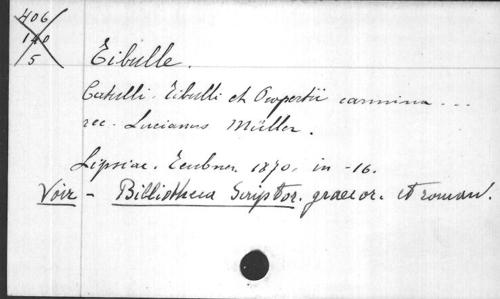 406
140
5
Tibulle.
Catulli. Tibulli et Propertii carmina ...
rec. Lucianus Müller.
Lipsiae. Teubner 1870. in-16.
Voir - Bibliotheca Scriptor. graecor. et roman.